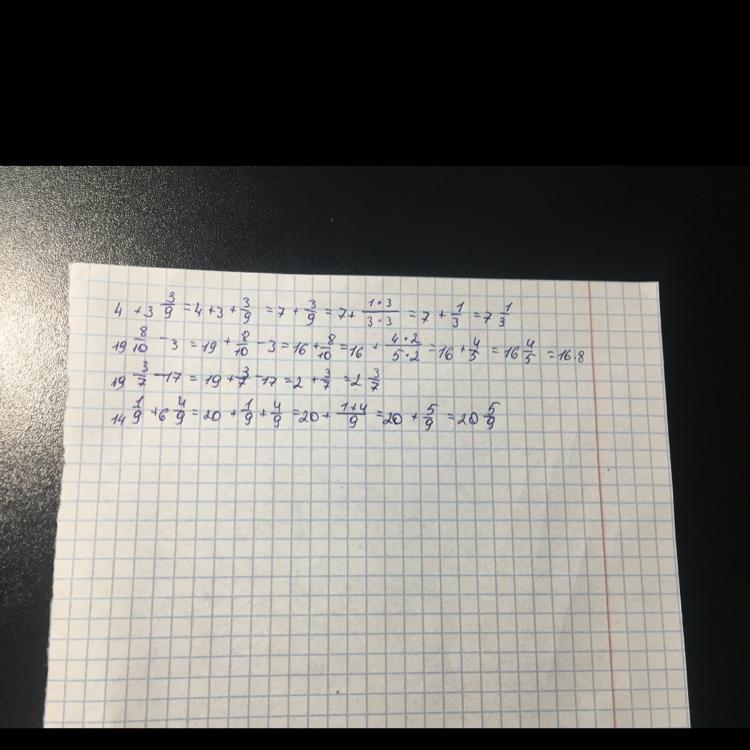 4 + 3 3/9 = 4 + 3 + 3/9 = 7 + 3/9 = 7 + 1·3/3·3 = 7 + 1/3 = 7 1/3
19 8/10 - 3 = 19 + 8/10 - 3 = 16 + 8/10 = 16 + 4·2/5·2 = 16 + 4/5 = 16 4/5 = 16.8
19 3/7 - 17 = 19 + 3/7 - 17 = 2 + 3/7 = 2 3/7
14 1/9 + 6 4/9 = 20 + 1/9 + 4/9 = 20 + 1+4/9 = 20 + 5/9 = 20 5/9